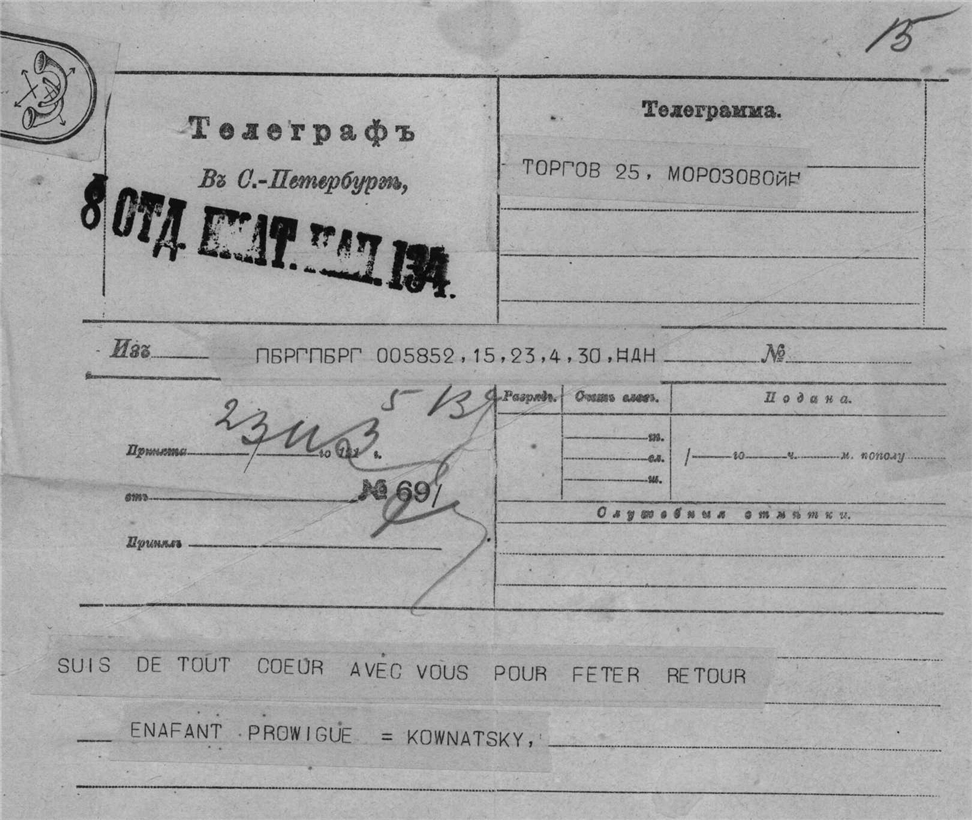 15
Телеграфъ
Въ С.-Петербургѣ,
8 ОТД. ЕКАТ. КАН. 134.
Телеграмма.
ТОРГОВ 25, МОРОЗОВОЙ=
Изъ ПБРГПБРГ 005852,15,23,4,30,НДН №
Разрядъ. Счетъ словъ. Подана.
Принята 23 II го 191 3 г.
го ч. м. пополу
отъ № 69
Служебныя отмѣтки.
Принялъ
SUIS DE TOUT COEUR AVEC VOUS POUR FETER RETOUR
ENAFANT PROWIGUE = KOWNATSKY,